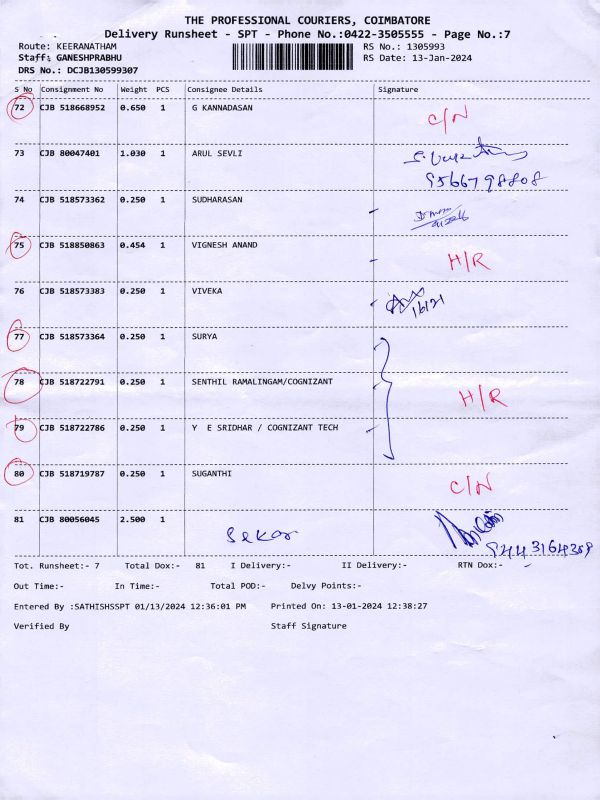 THE PROFESSIONAL COURIERS, COIMBATORE
Delivery Runsheet - SPT - Phone No.:0422-3505555 - Page No.:7
Route: KEERANATHAM RS No.: 1305993
Staff: GANESHPRABHU RS Date: 13-Jan-2024
DRS No.: DCJB130599307
S No Consignment No Weight PCS Consignee Details Signature
72 CJB 518668952 0.650 1 G KANNADASAN C/N
73 CJB 80047401 1.030 1 ARUL SEVLI
9566798808
74 CJB 518573362 0.250 1 SUDHARASAN
75 CJB 518850863 0.454 1 VIGNESH ANAND H/R
76 CJB 518573383 0.250 1 VIVEKA
77 CJB 518573364 0.250 1 SURYA
78 CJB 518722791 0.250 1 SENTHIL RAMALINGAM/COGNIZANT H/R
79 CJB 518722786 0.250 1 Y E SRIDHAR / COGNIZANT TECH
80 CJB 518719787 0.250 1 SUGANTHI C/N
81 CJB 80056045 2.500 1
Sekar
Tot. Runsheet:- 7 Total Dox:- 81 I Delivery:- II Delivery:- RTN Dox:-
Out Time:- In Time:- Total POD:- Delvy Points:-
Entered By :SATHISHSSPT 01/13/2024 12:36:01 PM Printed On: 13-01-2024 12:38:27
Verified By Staff Signature